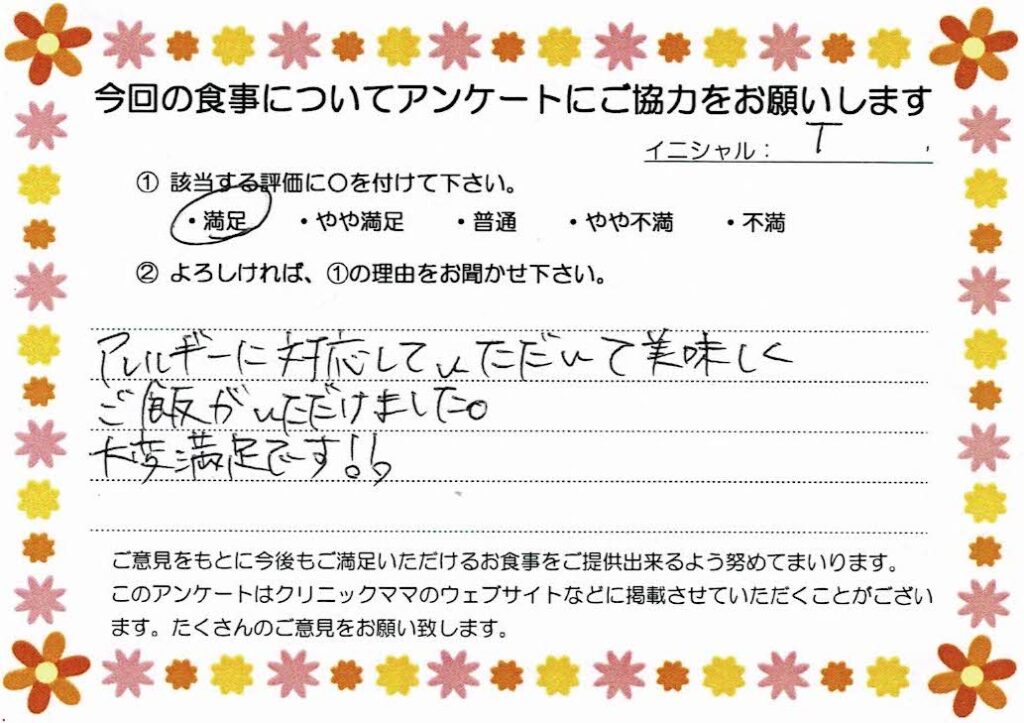 今回の食事についてアンケートにご協力をお願いします
イニシャル： T
① 該当する評価に〇を付けて下さい。
・満足 ・やや満足 ・普通 ・やや不満 ・不満
② よろしければ、①の理由をお聞かせ下さい。
アレルギーに対応していただいて美味しく
ご飯がいただけました。
大変満足です!!
ご意見をもとに今後もご満足いただけるお食事をご提供出来るよう努めてまいります。
このアンケートはクリニックママのウェブサイトなどに掲載させていただくことがござい
ます。たくさんのご意見をお願い致します。